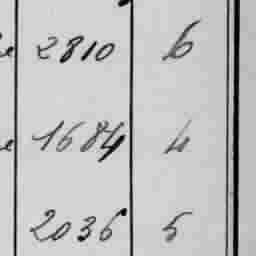 2810 6
1684 4
2036 5